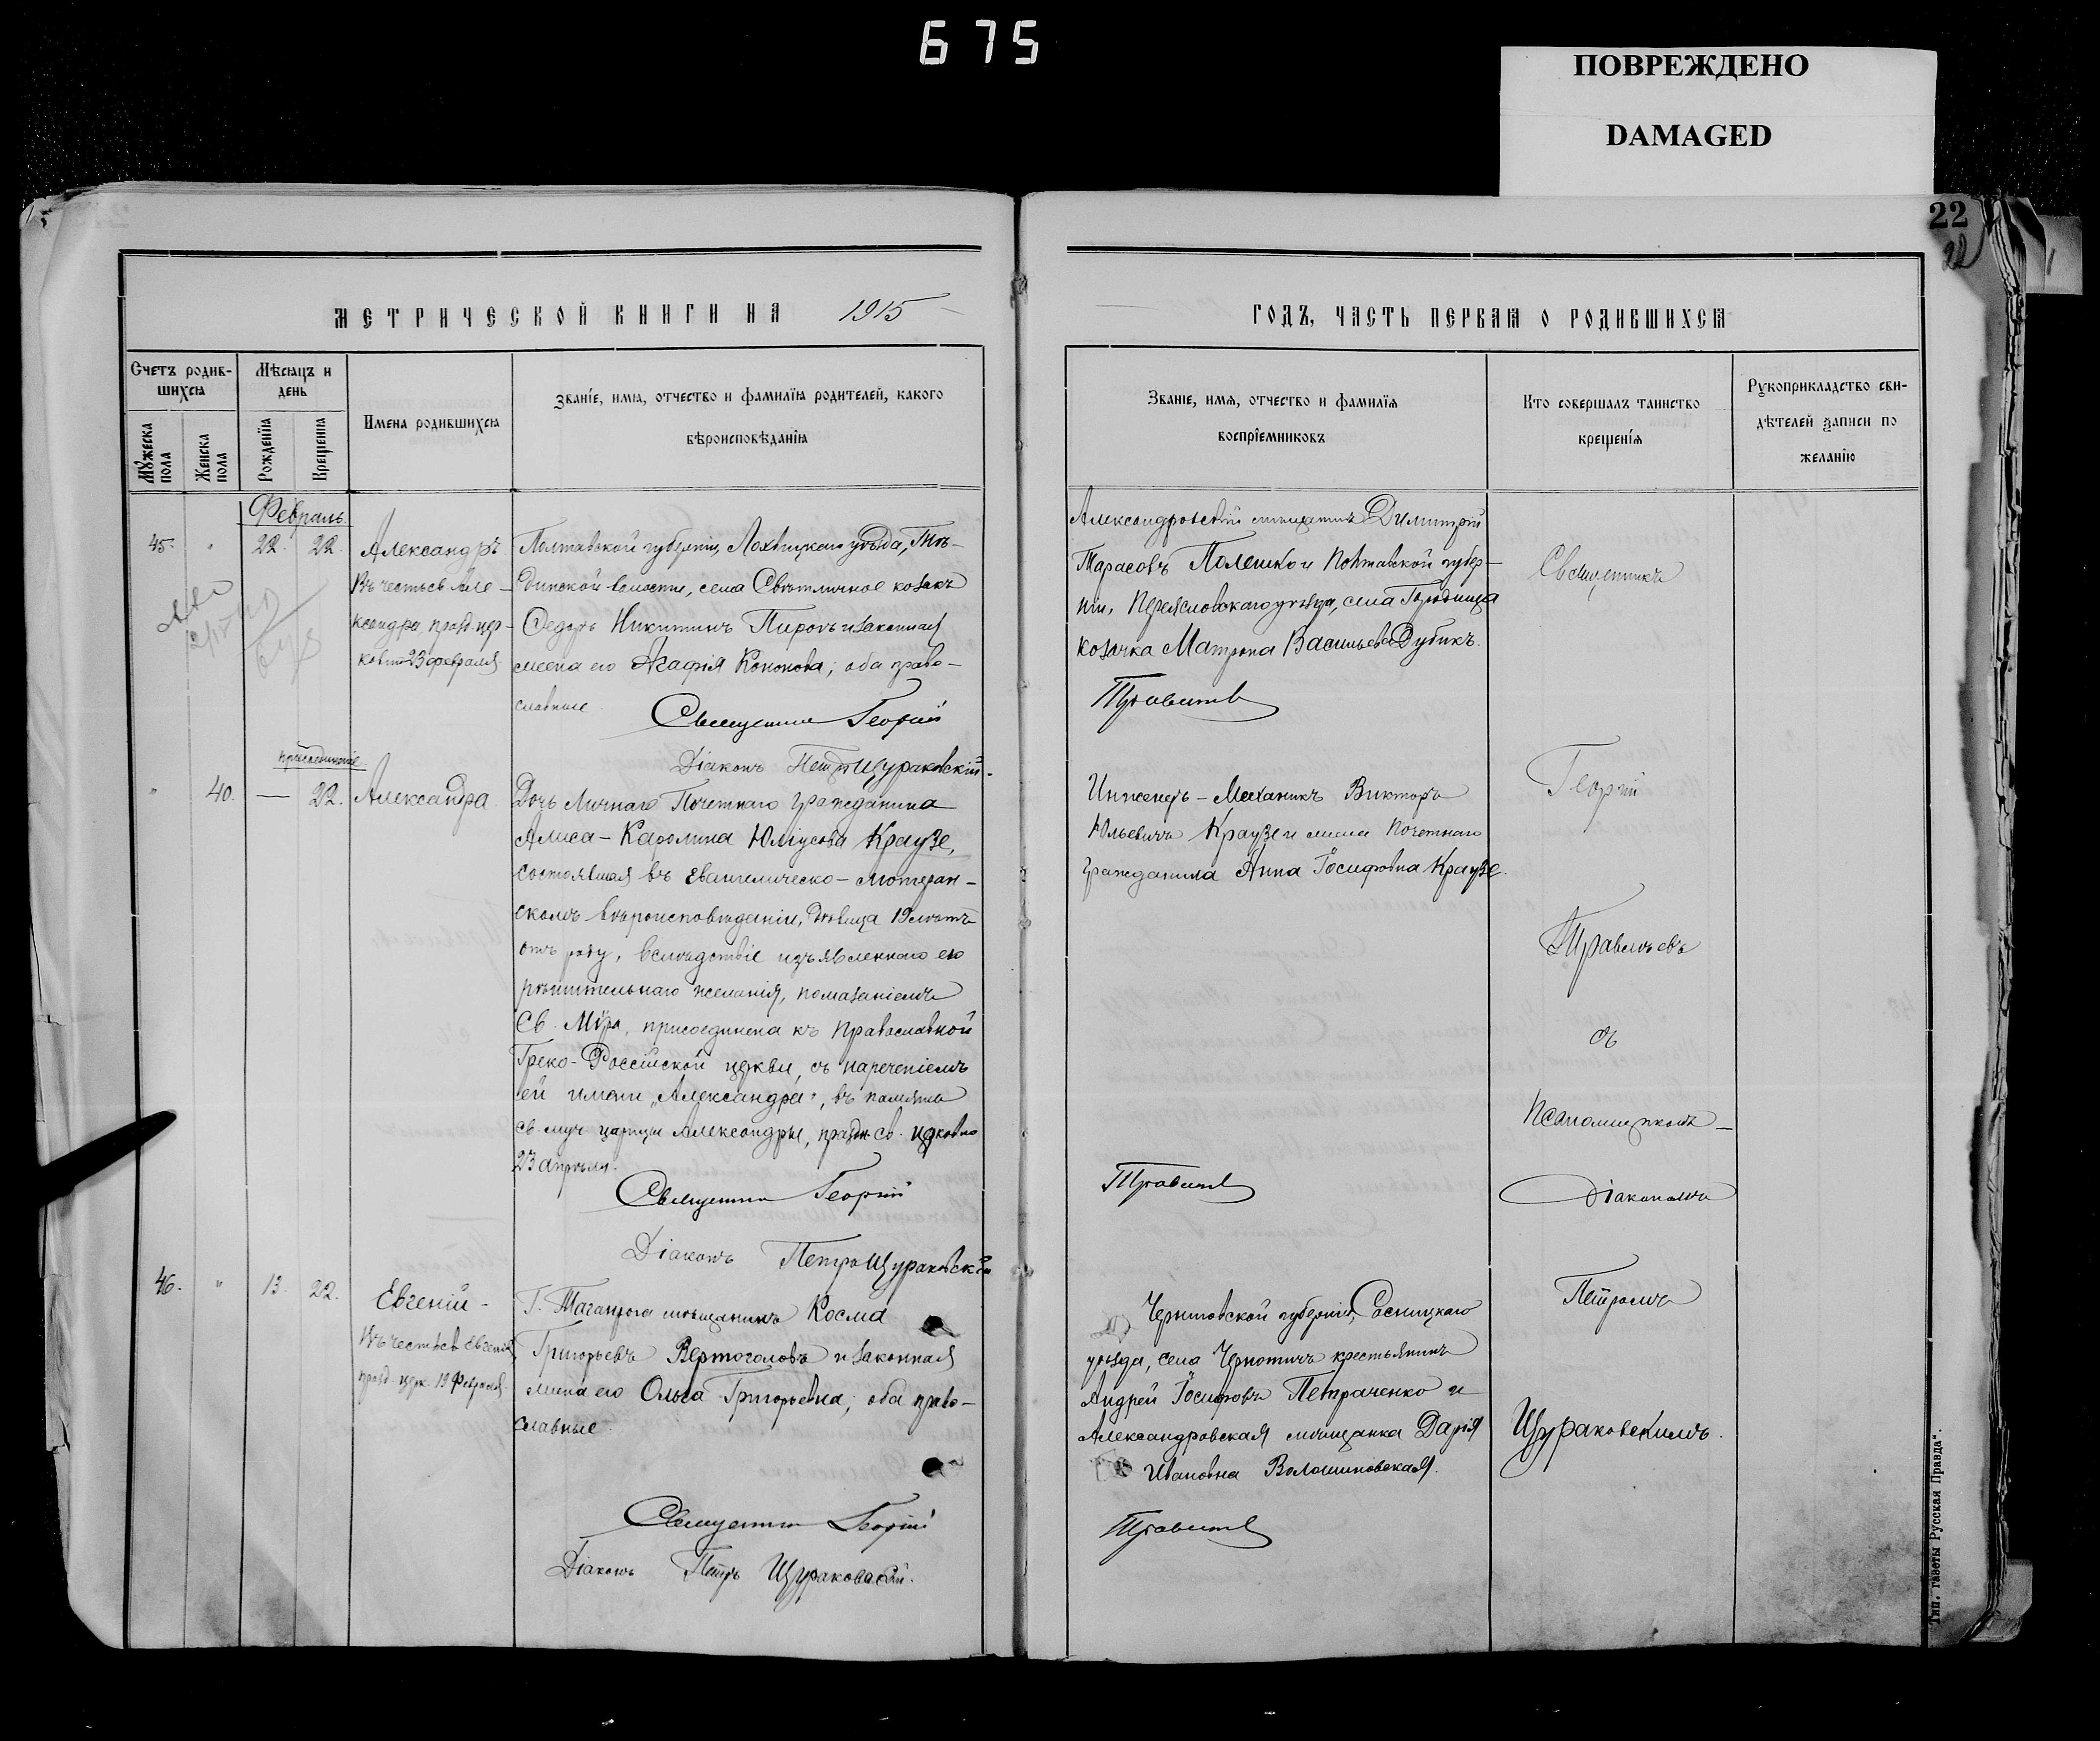 675
ПОВРЕЖДЕНО
DAMAGED
22
22
МЕТРИЧЕСКОЙ КНИГИ НА 1915
ГОДЪ, ЧАСТЬ ПЕРВАЯ О РОДИВШИХСЯ
Счетъ родив-
шихся
Мѣсяцъ и
день
Мужеска
пола
Женска
пола
Рожденїя
Крещенїя
Имена родившихся
Званїе, имя, отчество и фамилїя родителей, какого
вѣроисповѣданїя
Званїе, имя, отчество и фамилїя
воспрїемниковъ
Кто совершалъ таинство
крещенїя
Рукоприкладство сви-
дѣтелей записи по
желанїю
Февраль
45. " 22. 22.
Александръ
Въ честь св. Але-
ксандра, празд. цер-
ковію 23 февраля
Полтавской губерніи, Лохвицкаго уѣзда, Гнѣ-
динской волости, села Свѣтличное козакъ
Федоръ Никитинъ Пирогъ и законная
жена его Агафія Кононова; оба право-
славные
Священникъ Георгій
Діаконъ Петръ Щураковскій.
Александровскій мѣщанинъ Димитрій
Тарасовъ Полешко и Полтавской губер-
ніи, Переясловскаго уѣзда, села
козачка Матрона Васильева Дубикъ.
Травлѣевъ
присоединеніе
" 40. — 22.
Александра
Дочь Личнаго Почетнаго гражданина
Алиса-Каролина Юліусова Краузе,
состоявшая въ Евангелическо-лютеран-
скомъ вѣроисповѣданіи, дѣвица 19 лѣтъ
отъ роду, вслѣдствіе изъявленнаго ею
рѣшительнаго желанія, помазаніемъ
Св. Мѵра, присоединена къ Православной
Греко-Россійской церкви, съ нареченіемъ
ей имени „Александра", въ память
св. муч. царицы Александры, празд. св. церковію
23 апрѣля.
Священникъ Георгій
Діаконъ Петръ Щураковскій
Инженеръ-Механикъ Викторъ
Юльевичъ Краузе и жена Почетнаго
гражданина Анна Іосифовна Краузе.
Травлѣевъ
46. " 13. 22.
Евгеній
Въ честь св. Евгенія,
празд. церк. 19 Февраля.
Г. Таганрога мѣщанинъ Косма
Григорьевъ Вертоголовъ и законная
жена его Ольга Григорьевна; оба право-
славные
Священникъ Георгій
Діаконъ Петръ Щураковскій.
Черниговской губерніи, Сосницкаго
уѣзда, села Чернотичъ крестьянинъ
Андрей Іосифовъ Петраченко и
Александровская мѣщанка Дарія
Ивановна Волошиновская.
Травлѣевъ
Священникъ
Георгій
Травлѣевъ
съ
Псаломщикомъ-
Діакономъ
Петромъ
Щураковскимъ.
Тип. газеты Русская Правда".